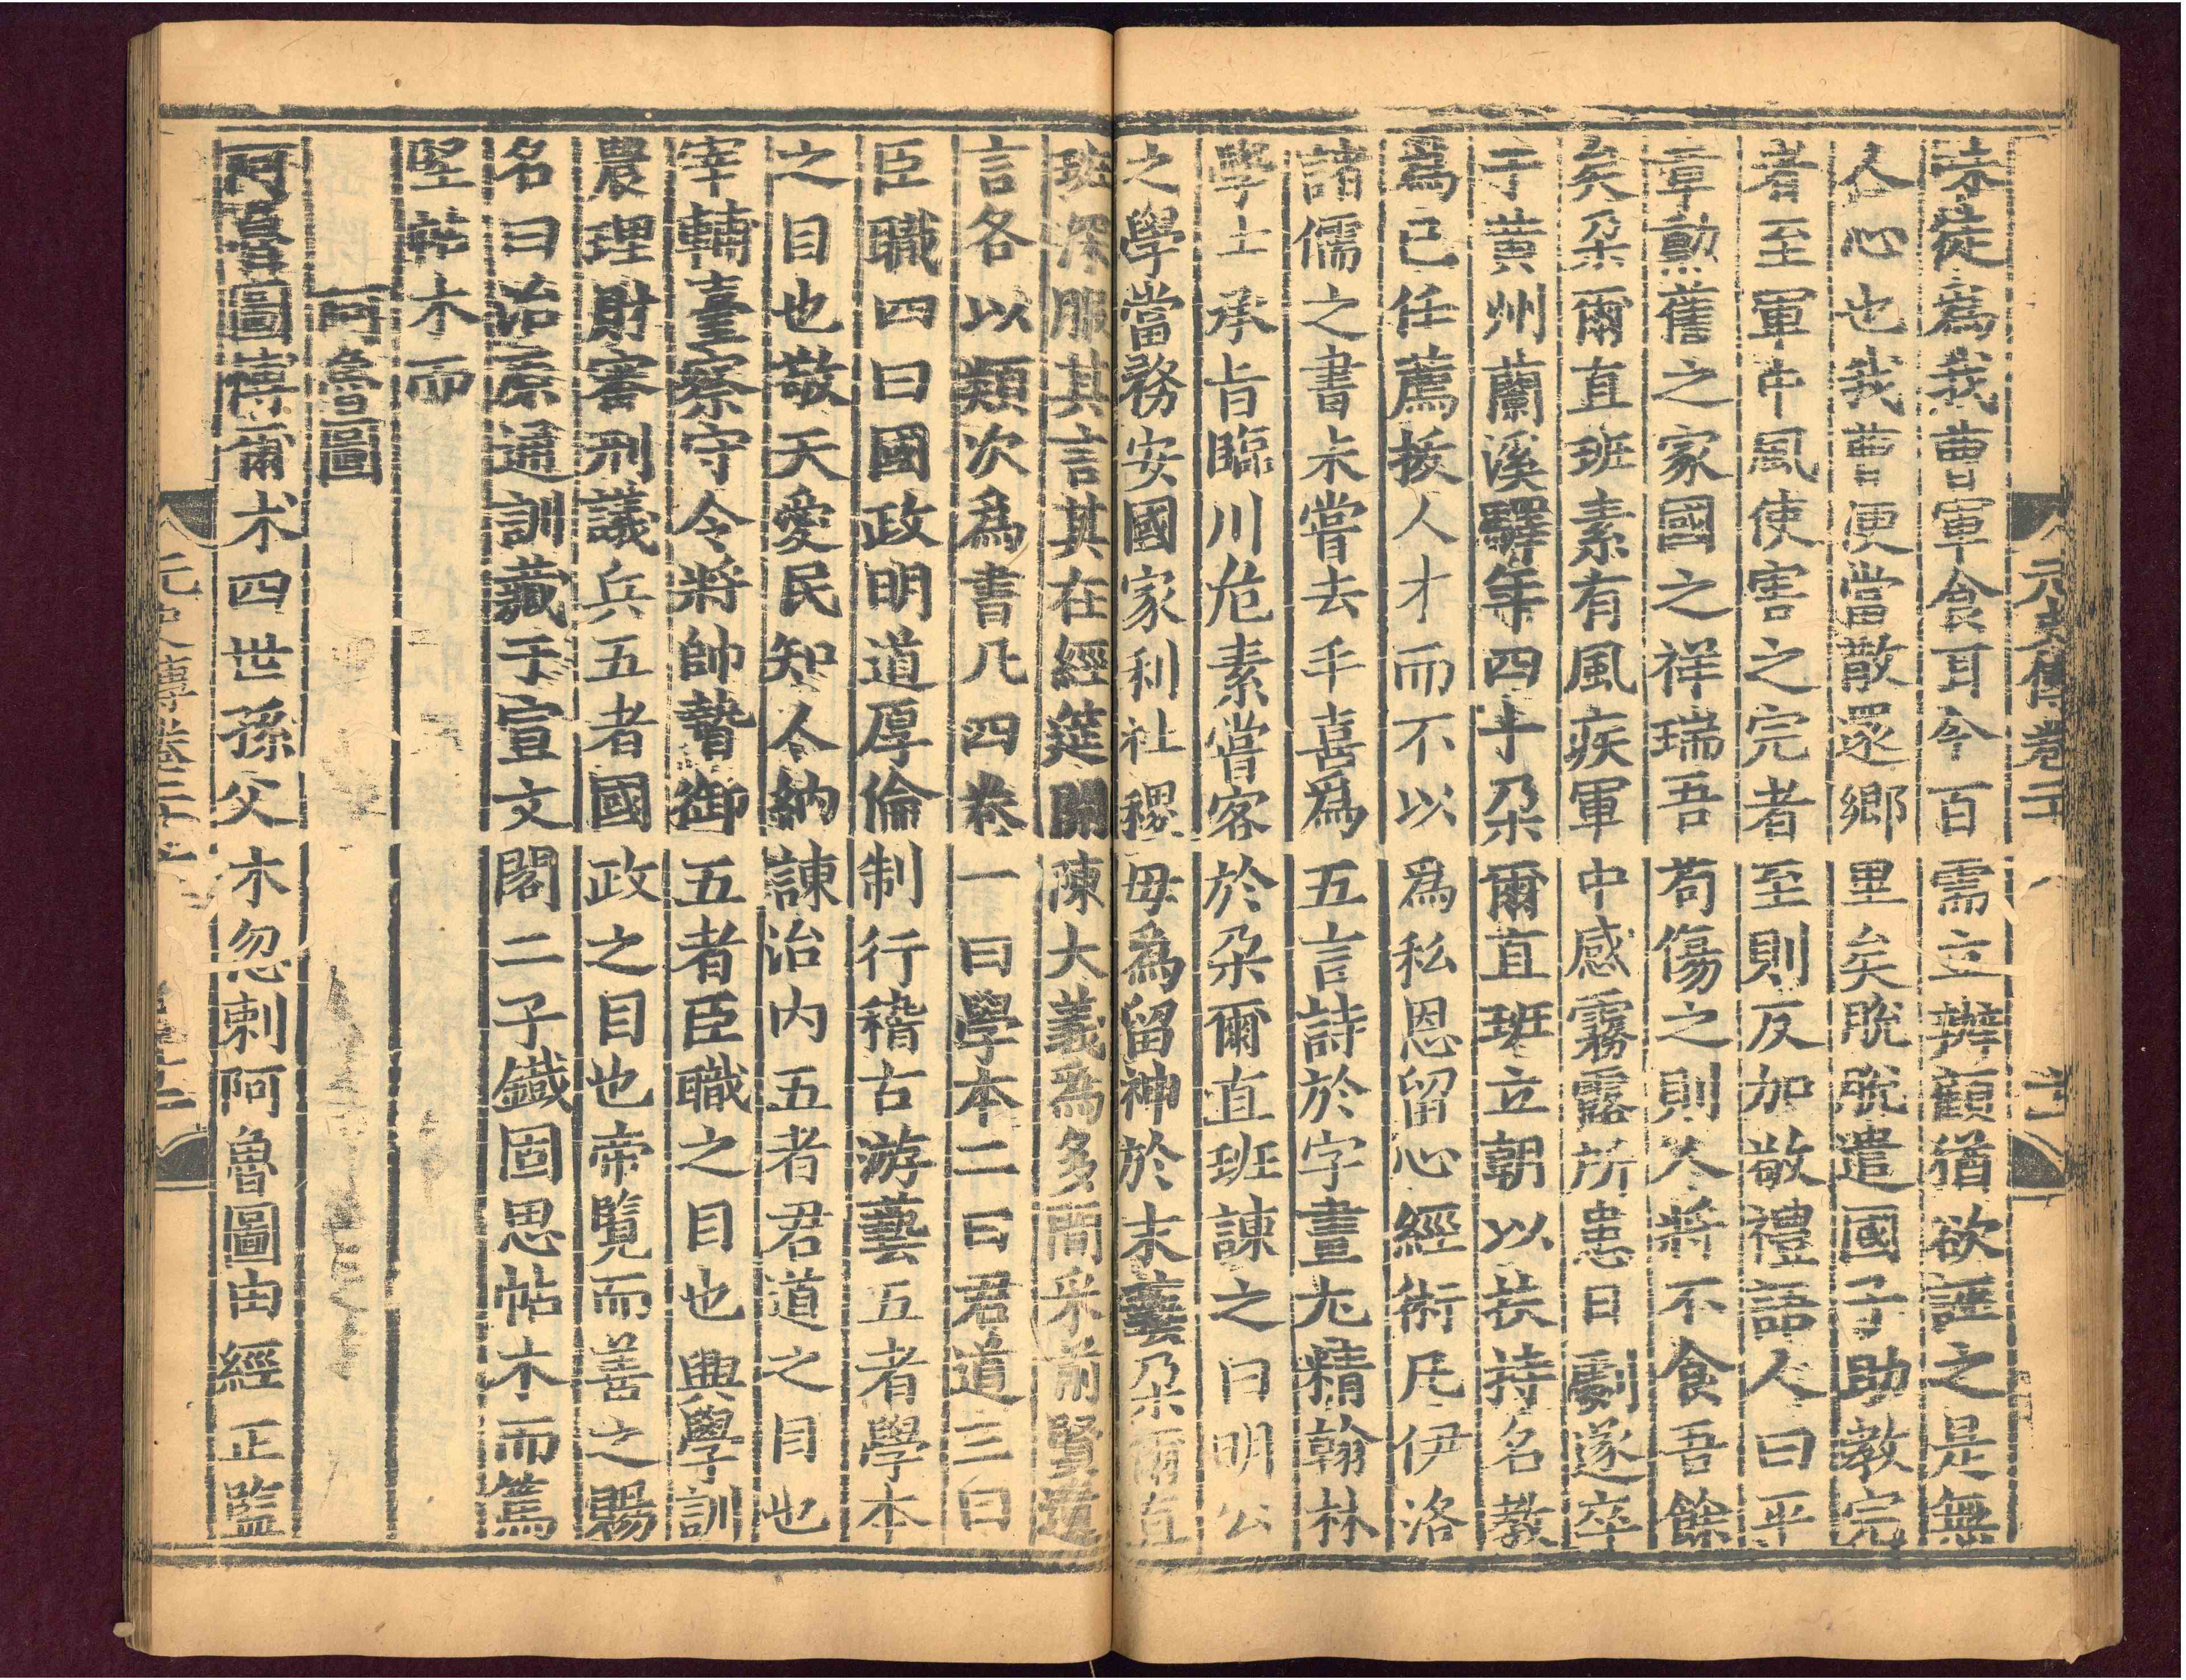 元史傳卷二
來從爲我曹軍食耳今百需立辨顧猶欲誣之是無
人心也我曹便當散還鄉里矣脫脫遣國子助教完
者至軍中風使害之完者至則反加敬禮語人曰平
章勲舊之家國之祥瑞吾苟傷之則人將不食吾餘
矣朶爾直班素有風疾軍中感霧露所患日劇遂卒
于黃州蘭溪驛年四十朶爾直班立朝以扶持名教
爲已任薦拔人才而不以爲私恩留心經術凡伊洛
諸儒之書未嘗去手喜爲五言詩於字畫尤精翰林
學士承旨臨川危素嘗客於朶爾直班諫之曰明公
之學當務安國家利社稷毋爲留神於末藝朶爾直
班深服其言其在經筵開陳大義爲多間采前賢遺
言各以類次爲書凡四卷一曰學本二曰君道三曰
臣職四曰國政明道厚倫制行稽古游藝五者學本
之目也敬天愛民知人納諫治内五者君道之目也
宰輔臺察守令將帥暬御五者臣職之目也興學訓
農理財審刑議兵五者國政之目也帝覽而善之賜
名曰治原通訓藏于宣文閣二子鐵固思帖木而篤
堅帖木而
阿魯圖
阿魯圖博爾术四世孫父木忽剌阿魯圖由經正監
元史傳卷二十六